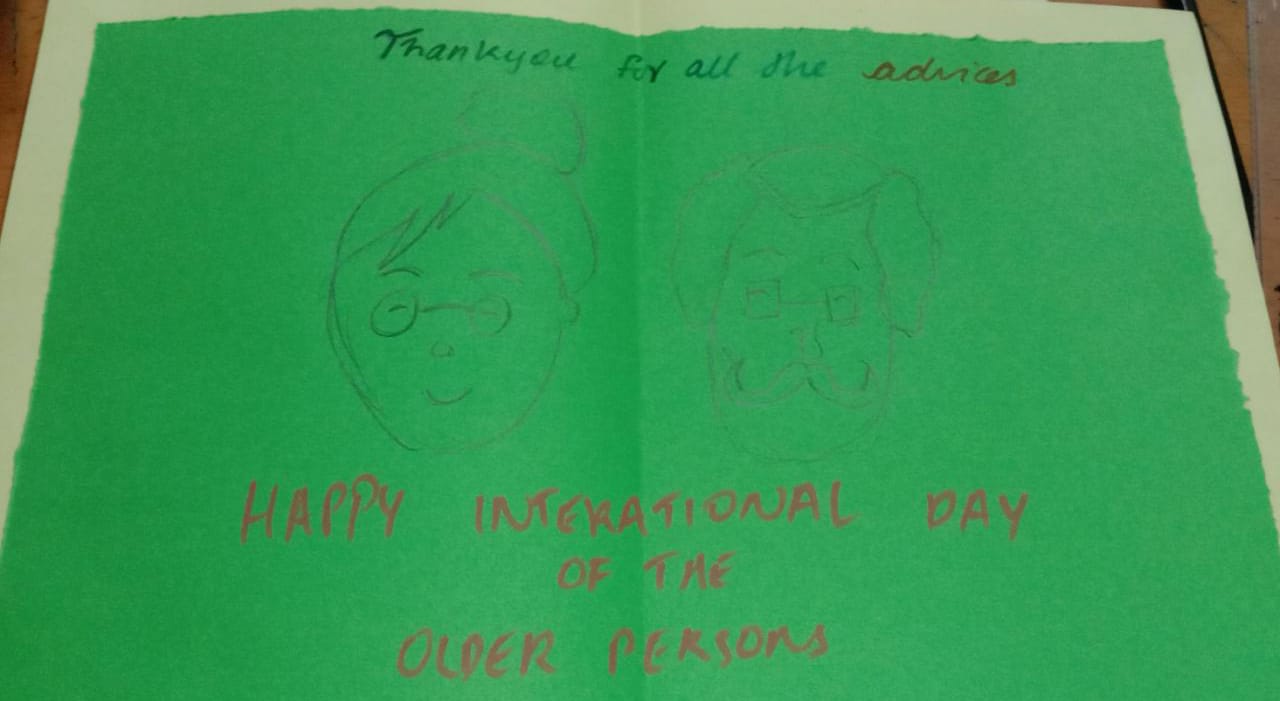 Thankyou for all the advices
HAPPY INTERATIONAL DAY
OF THE
OLDER PERSONS